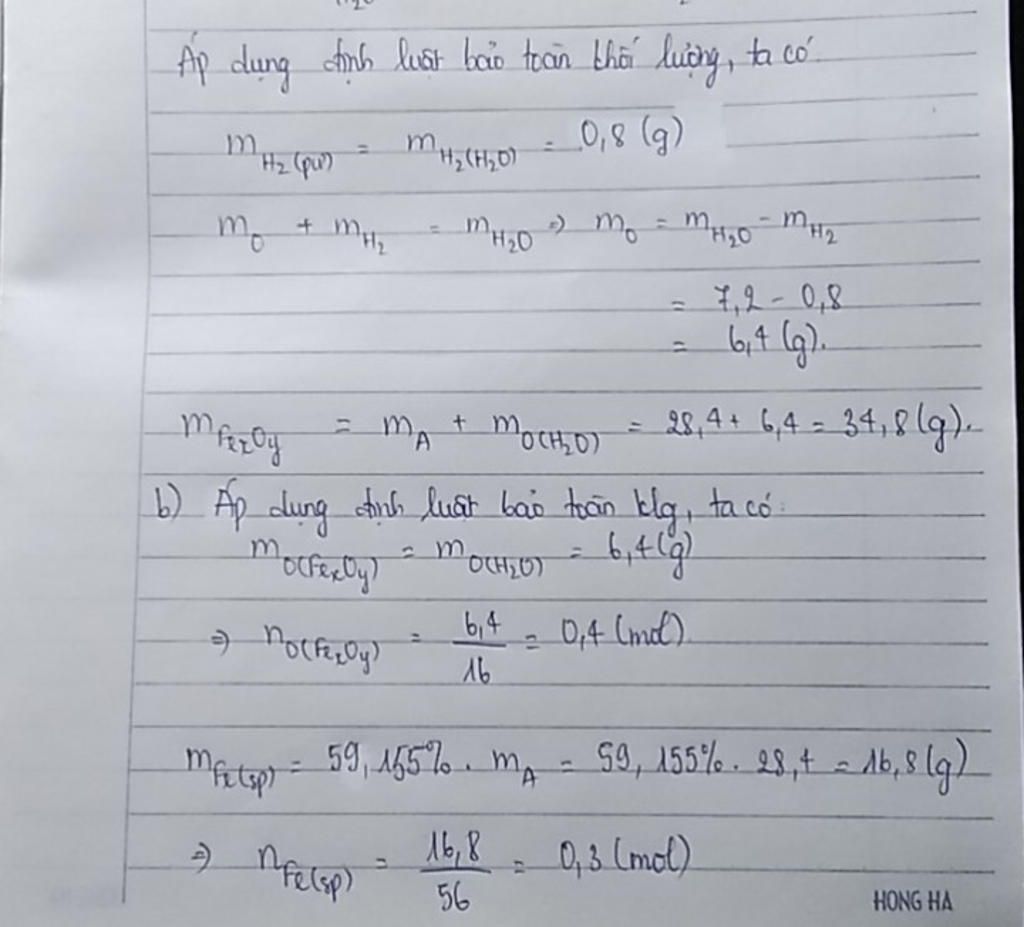 Áp dụng định luật bảo toàn khối lượng, ta có
m H₂(pư) = m H₂(H₂O) = 0,8 (g)
m O + m H₂ = m H₂O ⇒ m O = m H₂O - m H₂
= 7,2 - 0,8
= 6,4 (g).
m FexOy = m A + m O(H₂O) = 28,4 + 6,4 = 34,8 (g).
b) Áp dụng định luật bảo toàn klg, ta có:
m O(FexOy) = m O(H₂O) = 6,4 (g)
⇒ n O(FexOy) = 6,4/16 = 0,4 (mol)
m Fe(sp) = 59,155% . m A = 59,155% . 28,4 = 16,8 (g)
⇒ n Fe(sp) = 16,8/56 = 0,3 (mol)
HONG HA